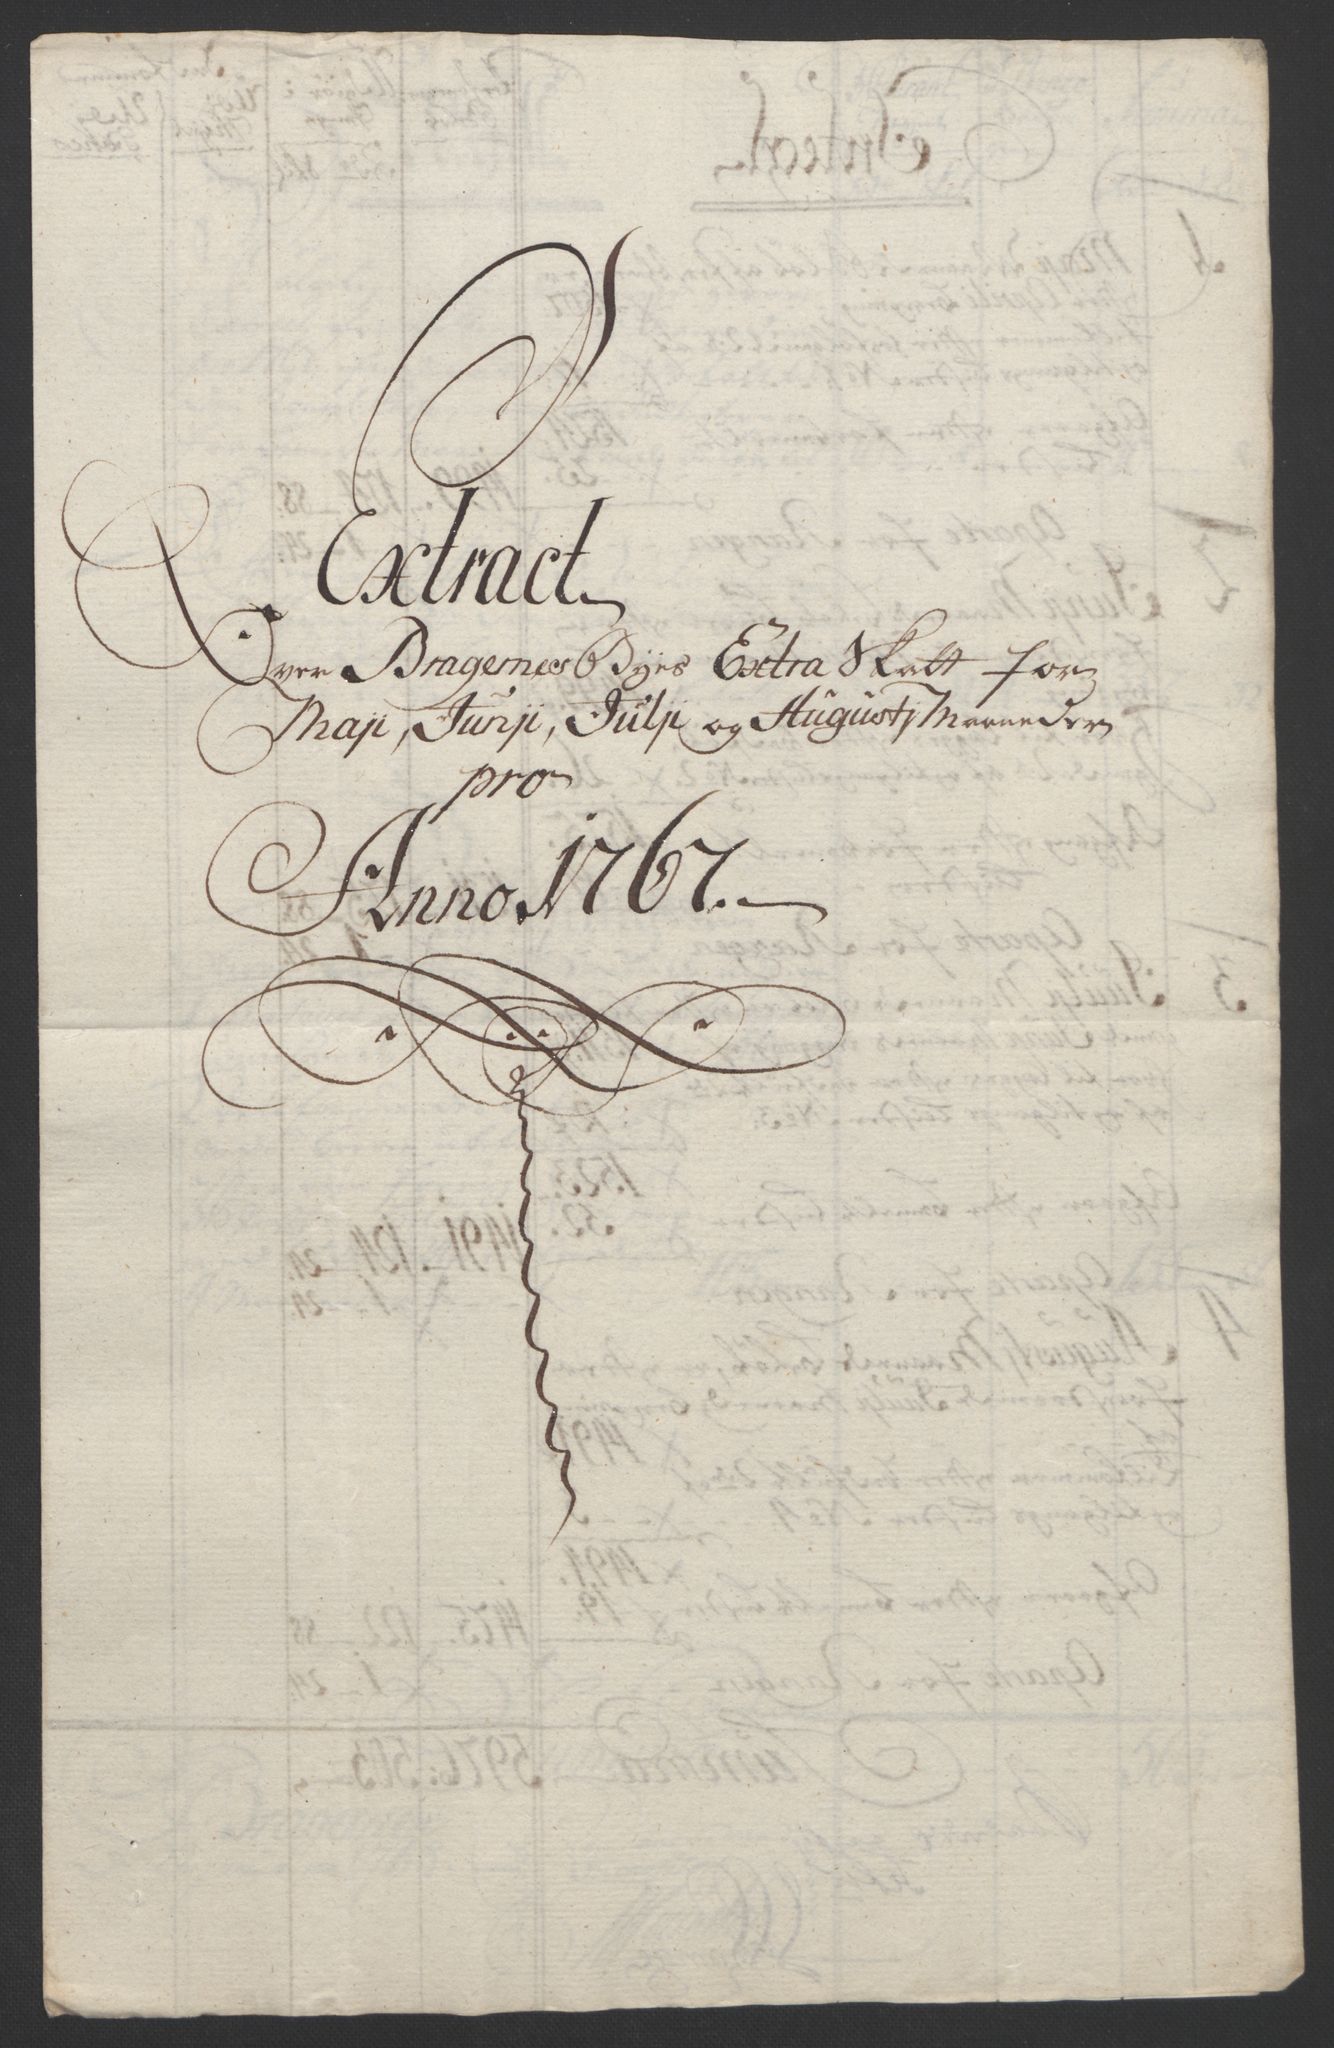 Extract
Over Bragernes Byes Extra Skatt for
Maji, Junji, Julji og Augustj Maaneder
pro
Anno 1767.